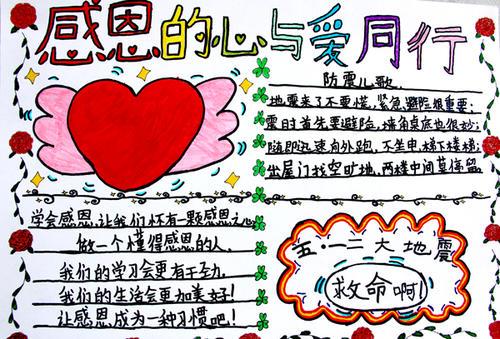 感恩的心与爱同行
防震儿歌
地震来了不要慌,紧急避险很重要;
震时首先要避险,墙角桌底也很妙;
随即迅速向外跑,不坐电梯下楼梯;
出屋门找空旷地,两楼中间莫停留.
学会感恩,让我们怀有一颗感恩之心,
做一个懂得感恩的人.
我们的学习会更有干劲.
我们的生活会更加美好!
让感恩成为一种习惯吧!
五·一二大地震
救命啊!